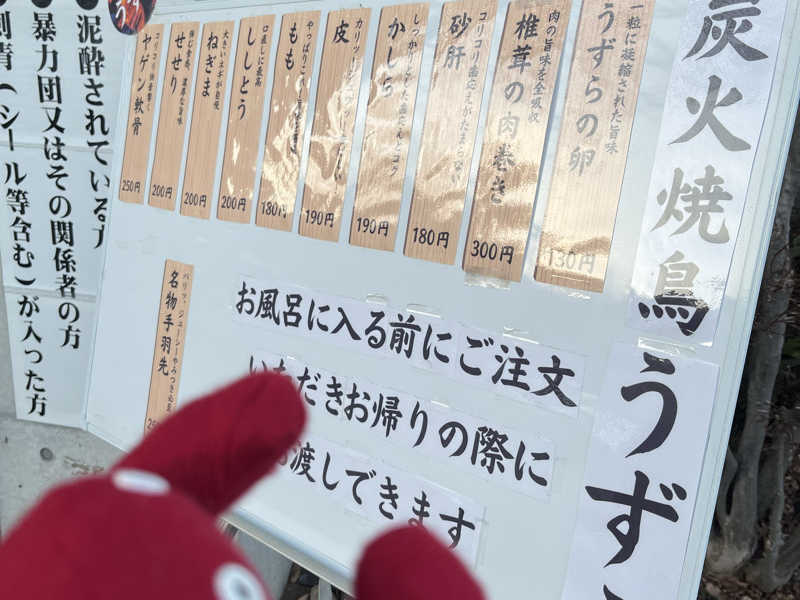 炭火焼鳥うず
一粒に凝縮された旨味
うずらの卵
130円
肉の旨味を全吸収
椎茸の肉巻き
300円
コリコリ歯応えがたまらない
砂肝
180円
かしら
190円
皮
190円
もも
180円
口直しに最高
ししとう
200円
大きいネギが自慢
ねぎま
200円
せせり
200円
ヤゲン軟骨
250円
名物手羽先
お風呂に入る前にご注文
いただきお帰りの際に
お渡しできます
泥酔されている方
暴力団又はその関係者の方
刺青(シール等含む)が入った方